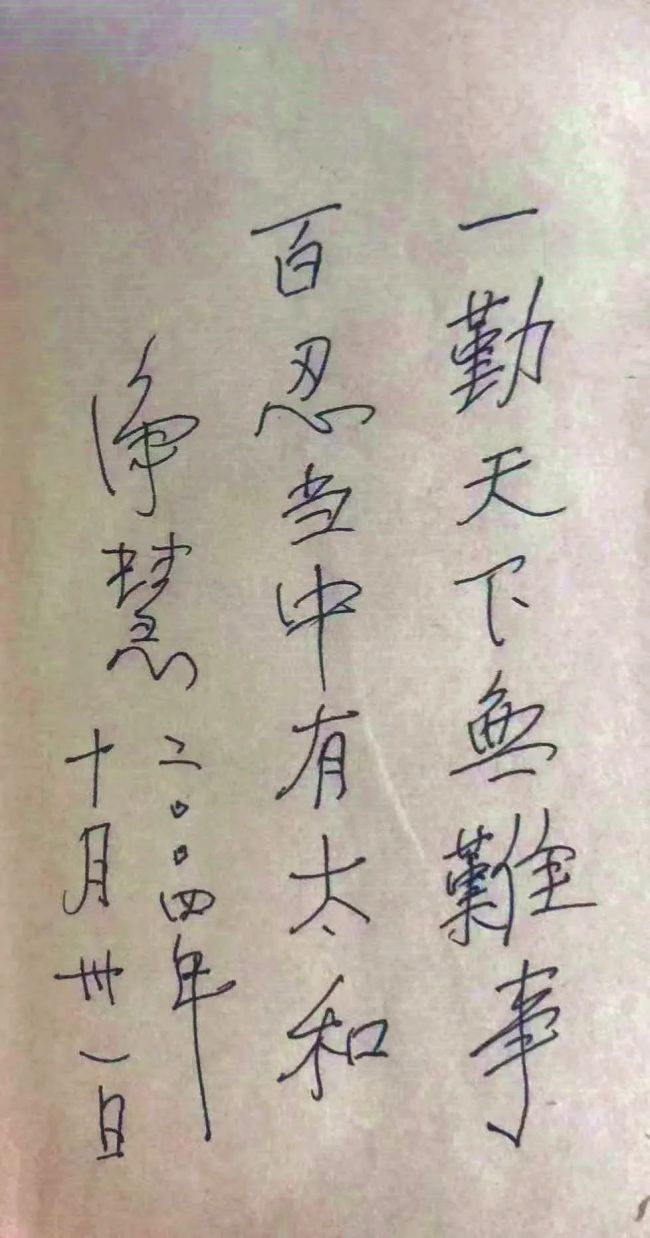 一勤天下無難事
百忍当中有太和
净慧
二〇〇四年
十月卅一日